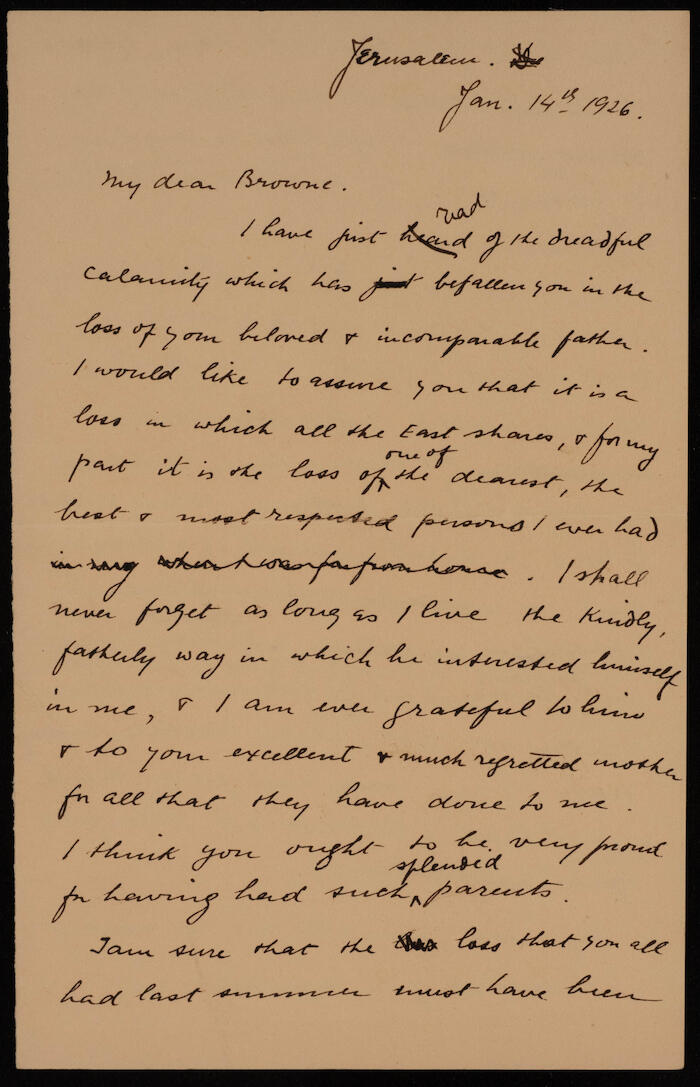 Jerusalem.
Jan. 14th 1926.
My dear Browne.
read
I have just heard of the dreadful
calamity which has just befallen you in the
loss of your beloved & incomparable father.
I would like to assure you that it is a
loss in which all the East shares, & for my
one of
part it is the loss of the dearest, the
best & most respected persons I ever had
in my when I was far from home. I shall
never forget as long as I live the kindly,
fatherly way in which he interested himself
in me, & I am ever grateful to him
& to your excellent & much regretted mother
for all that they have done to me.
I think you ought to be very proud
splendid
for having had such parents.
I am sure that the loss that you all
had last summer must have been